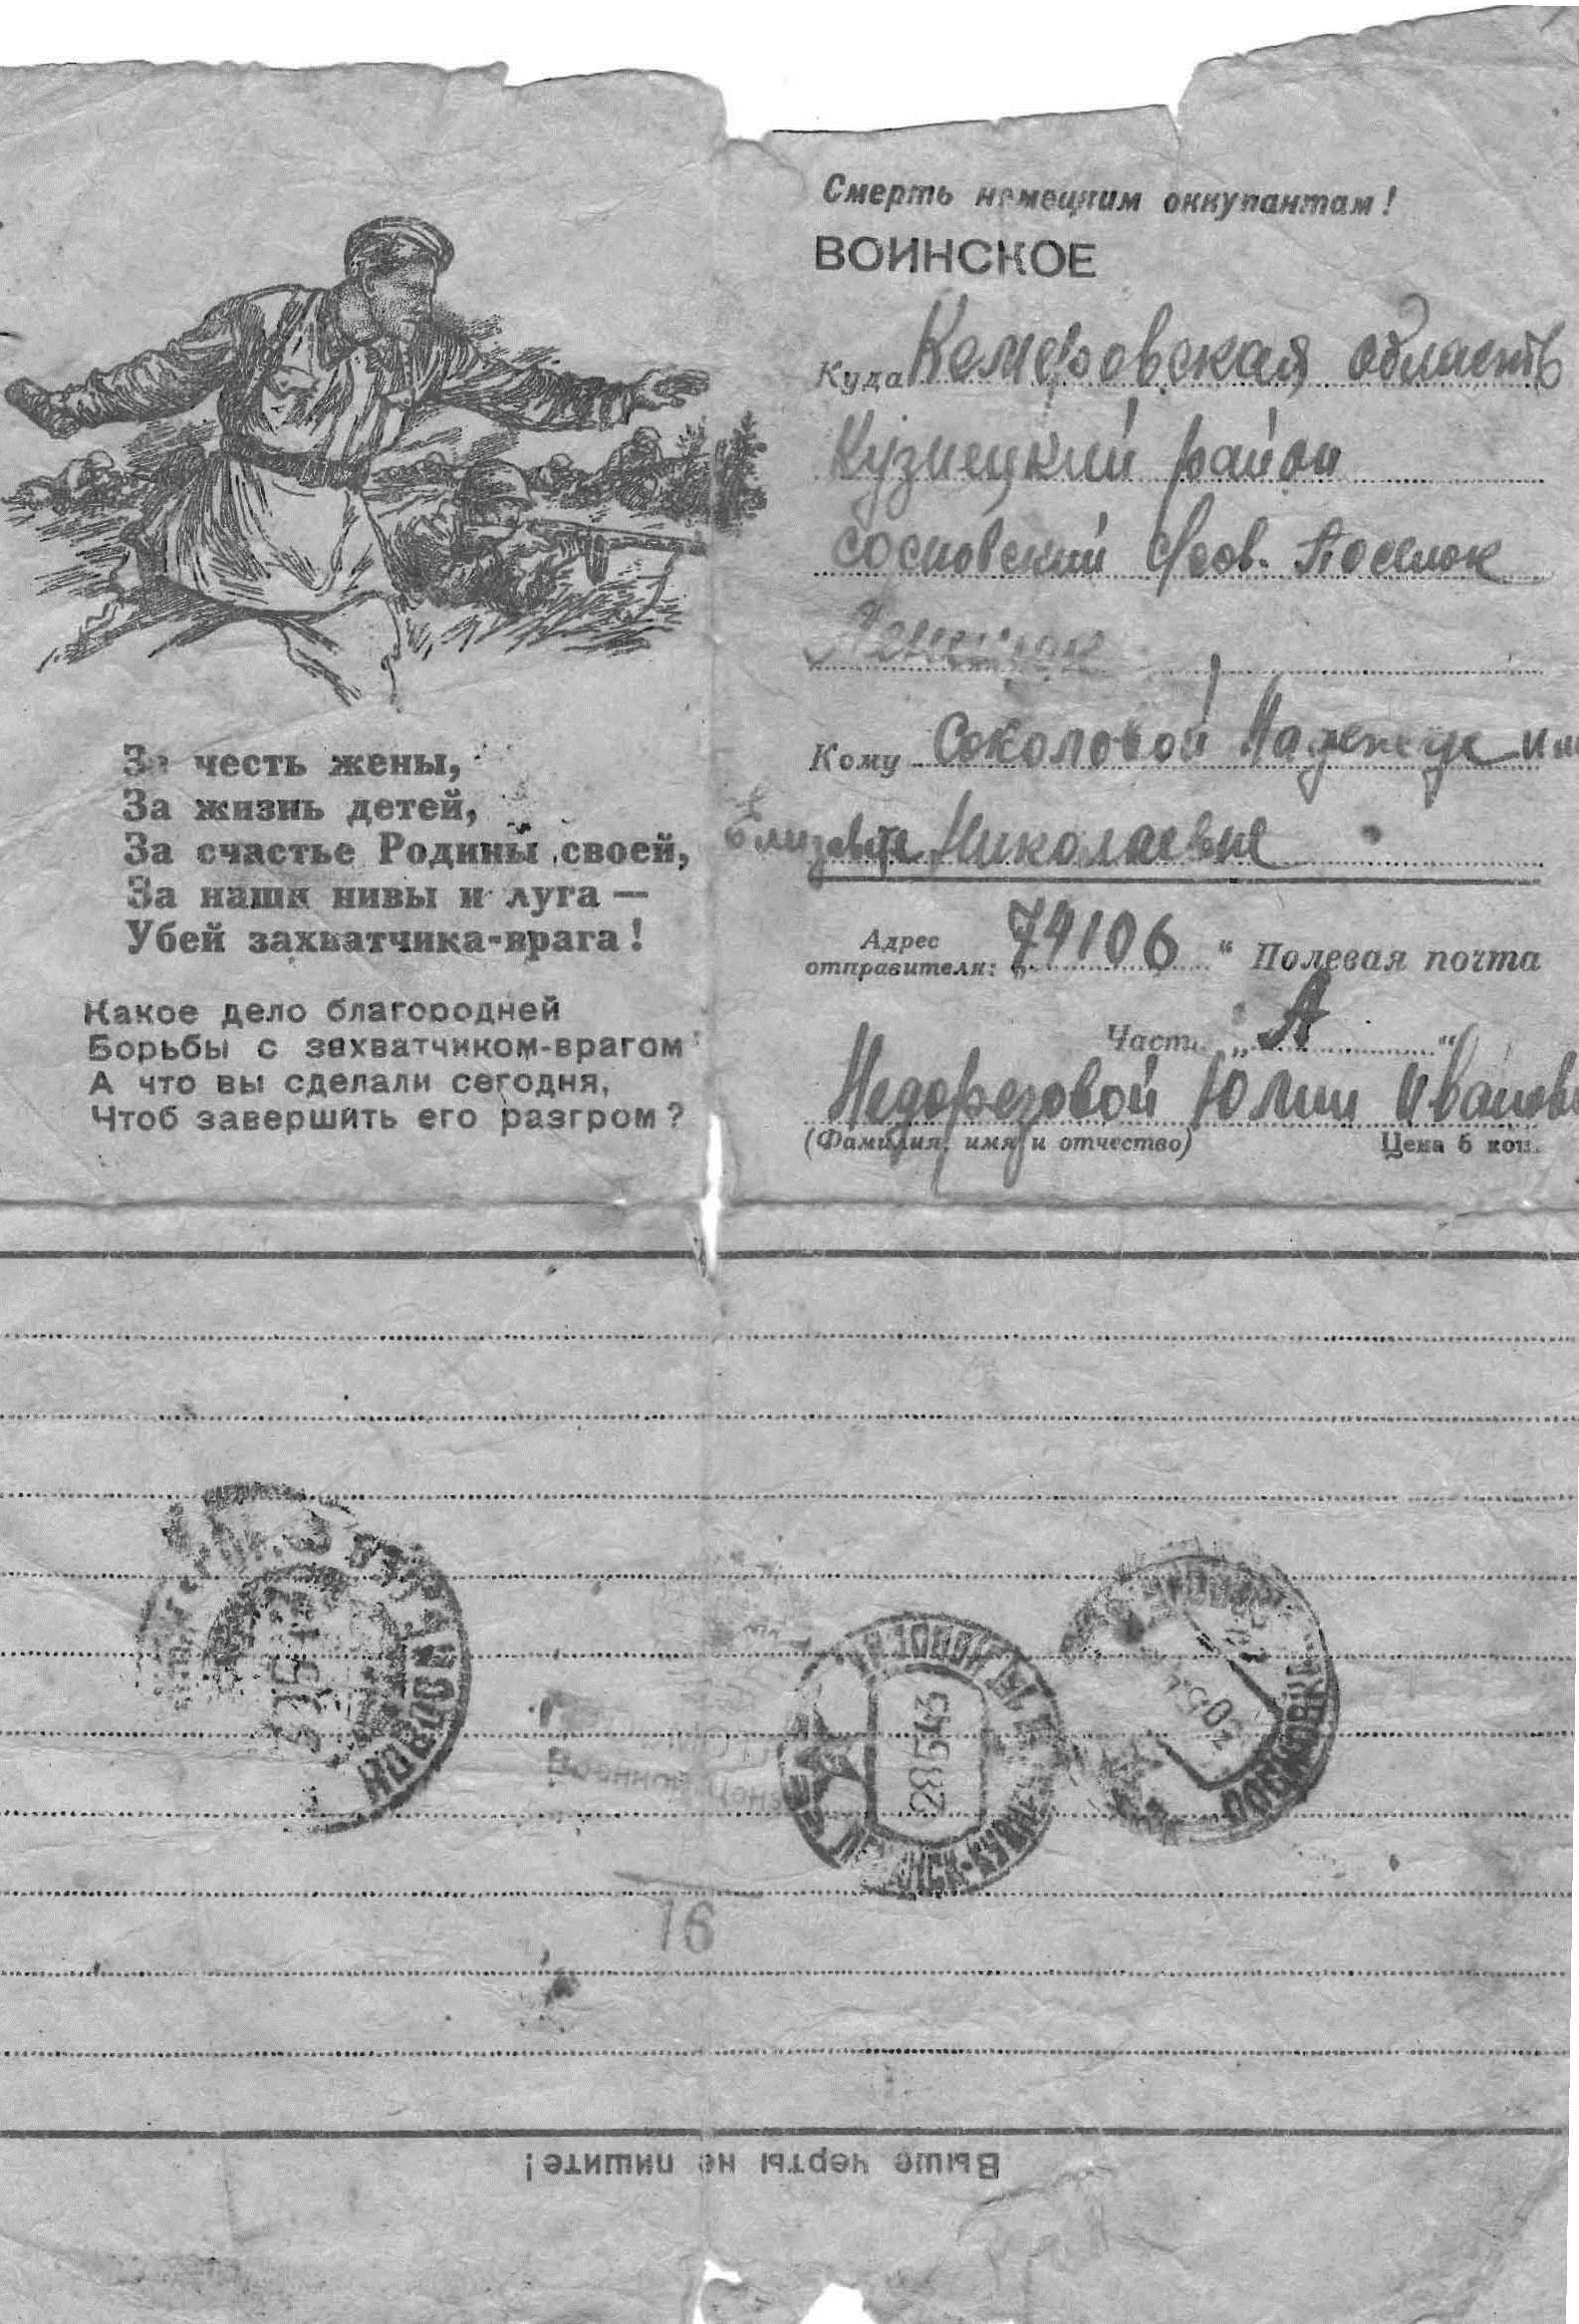 Смерть немецким оккупантам!
ВОИНСКОЕ
Куда Кемеровская область
Кузнецкий район
Сосновский Посёлок
Кому Соколовой Надежде или
Елизавете Николаевне
Адрес отправителя: „74106“ Полевая почта
Часть „А“
Недорезовой Юлии Иванов
(Фамилия, имя и отчество) Цена 5 коп.
За честь жены,
За жизнь детей,
За счастье Родины своей,
За наши нивы и луга —
Убей захватчика-врага!
Какое дело благородней
Борьбы с захватчиком-врагом
А что вы сделали сегодня,
Чтоб завершить его разгром?
28 5 43
16
Выше черты не пишите!